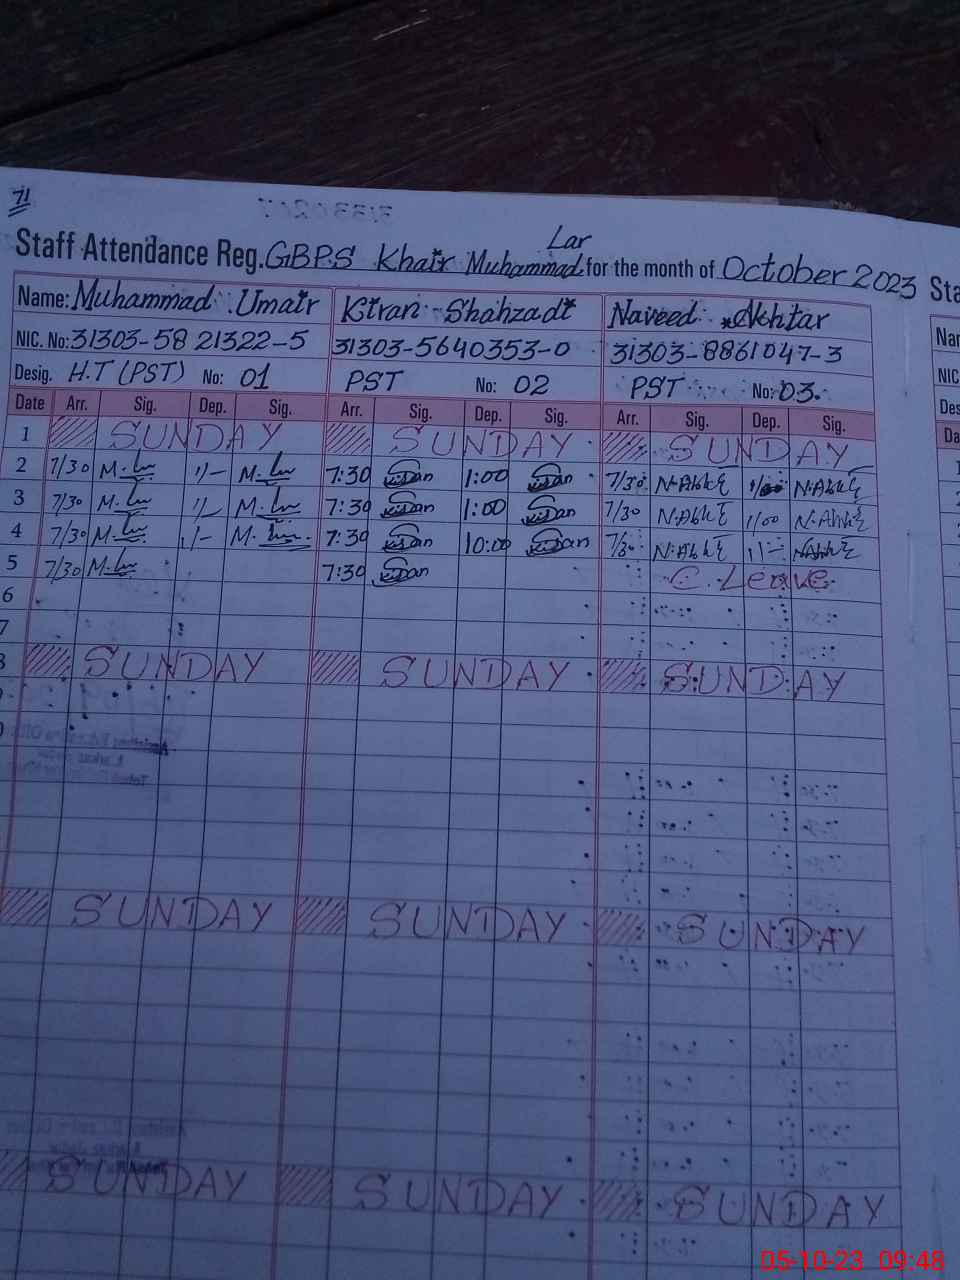 71
Lar
Staff Attendance Reg. GBPS Khair Muhammad for the month of October 2023
Name: Muhammad Umair Kiran Shahzadi Naveed Akhtar
NIC. No: 31303-5821322-5 31303-5640353-0 31303-8861047-3
Desig. H.T (PST) No: 01 PST No: 02 PST No: 03.
Date Arr. Sig. Dep. Sig. Arr. Sig. Dep. Sig. Arr. Sig. Dep. Sig.
1 SUNDAY SUNDAY SUNDAY
2 7/30 1/- 7:30 1:00 7/30
3 7/30 7:30 1:00 7/30 1/00
4 7/30 1/- 7:30 10:00 7/30
5 7/30 7:30 C. Leave
6
7
8 SUNDAY SUNDAY SUNDAY
SUNDAY SUNDAY SUNDAY
SUNDAY SUNDAY SUNDAY
05-10-23 09:48